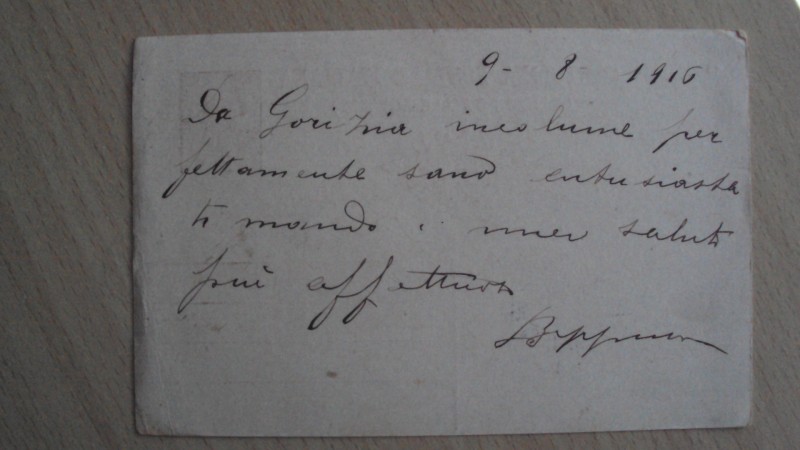 9 - 8 - 1916
Da Gorizia incolume per
fettamente sano entusiasta
ti mando i miei saluti
più affettuosi
Beppino